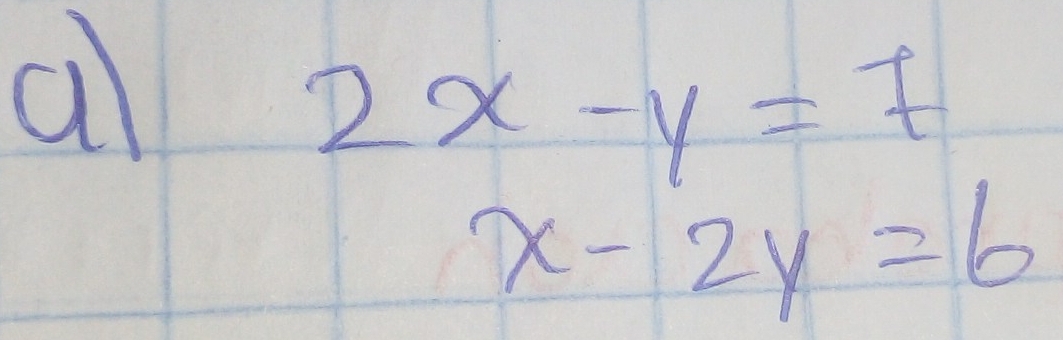 a) 2x - y = 7
x - 2y = 6